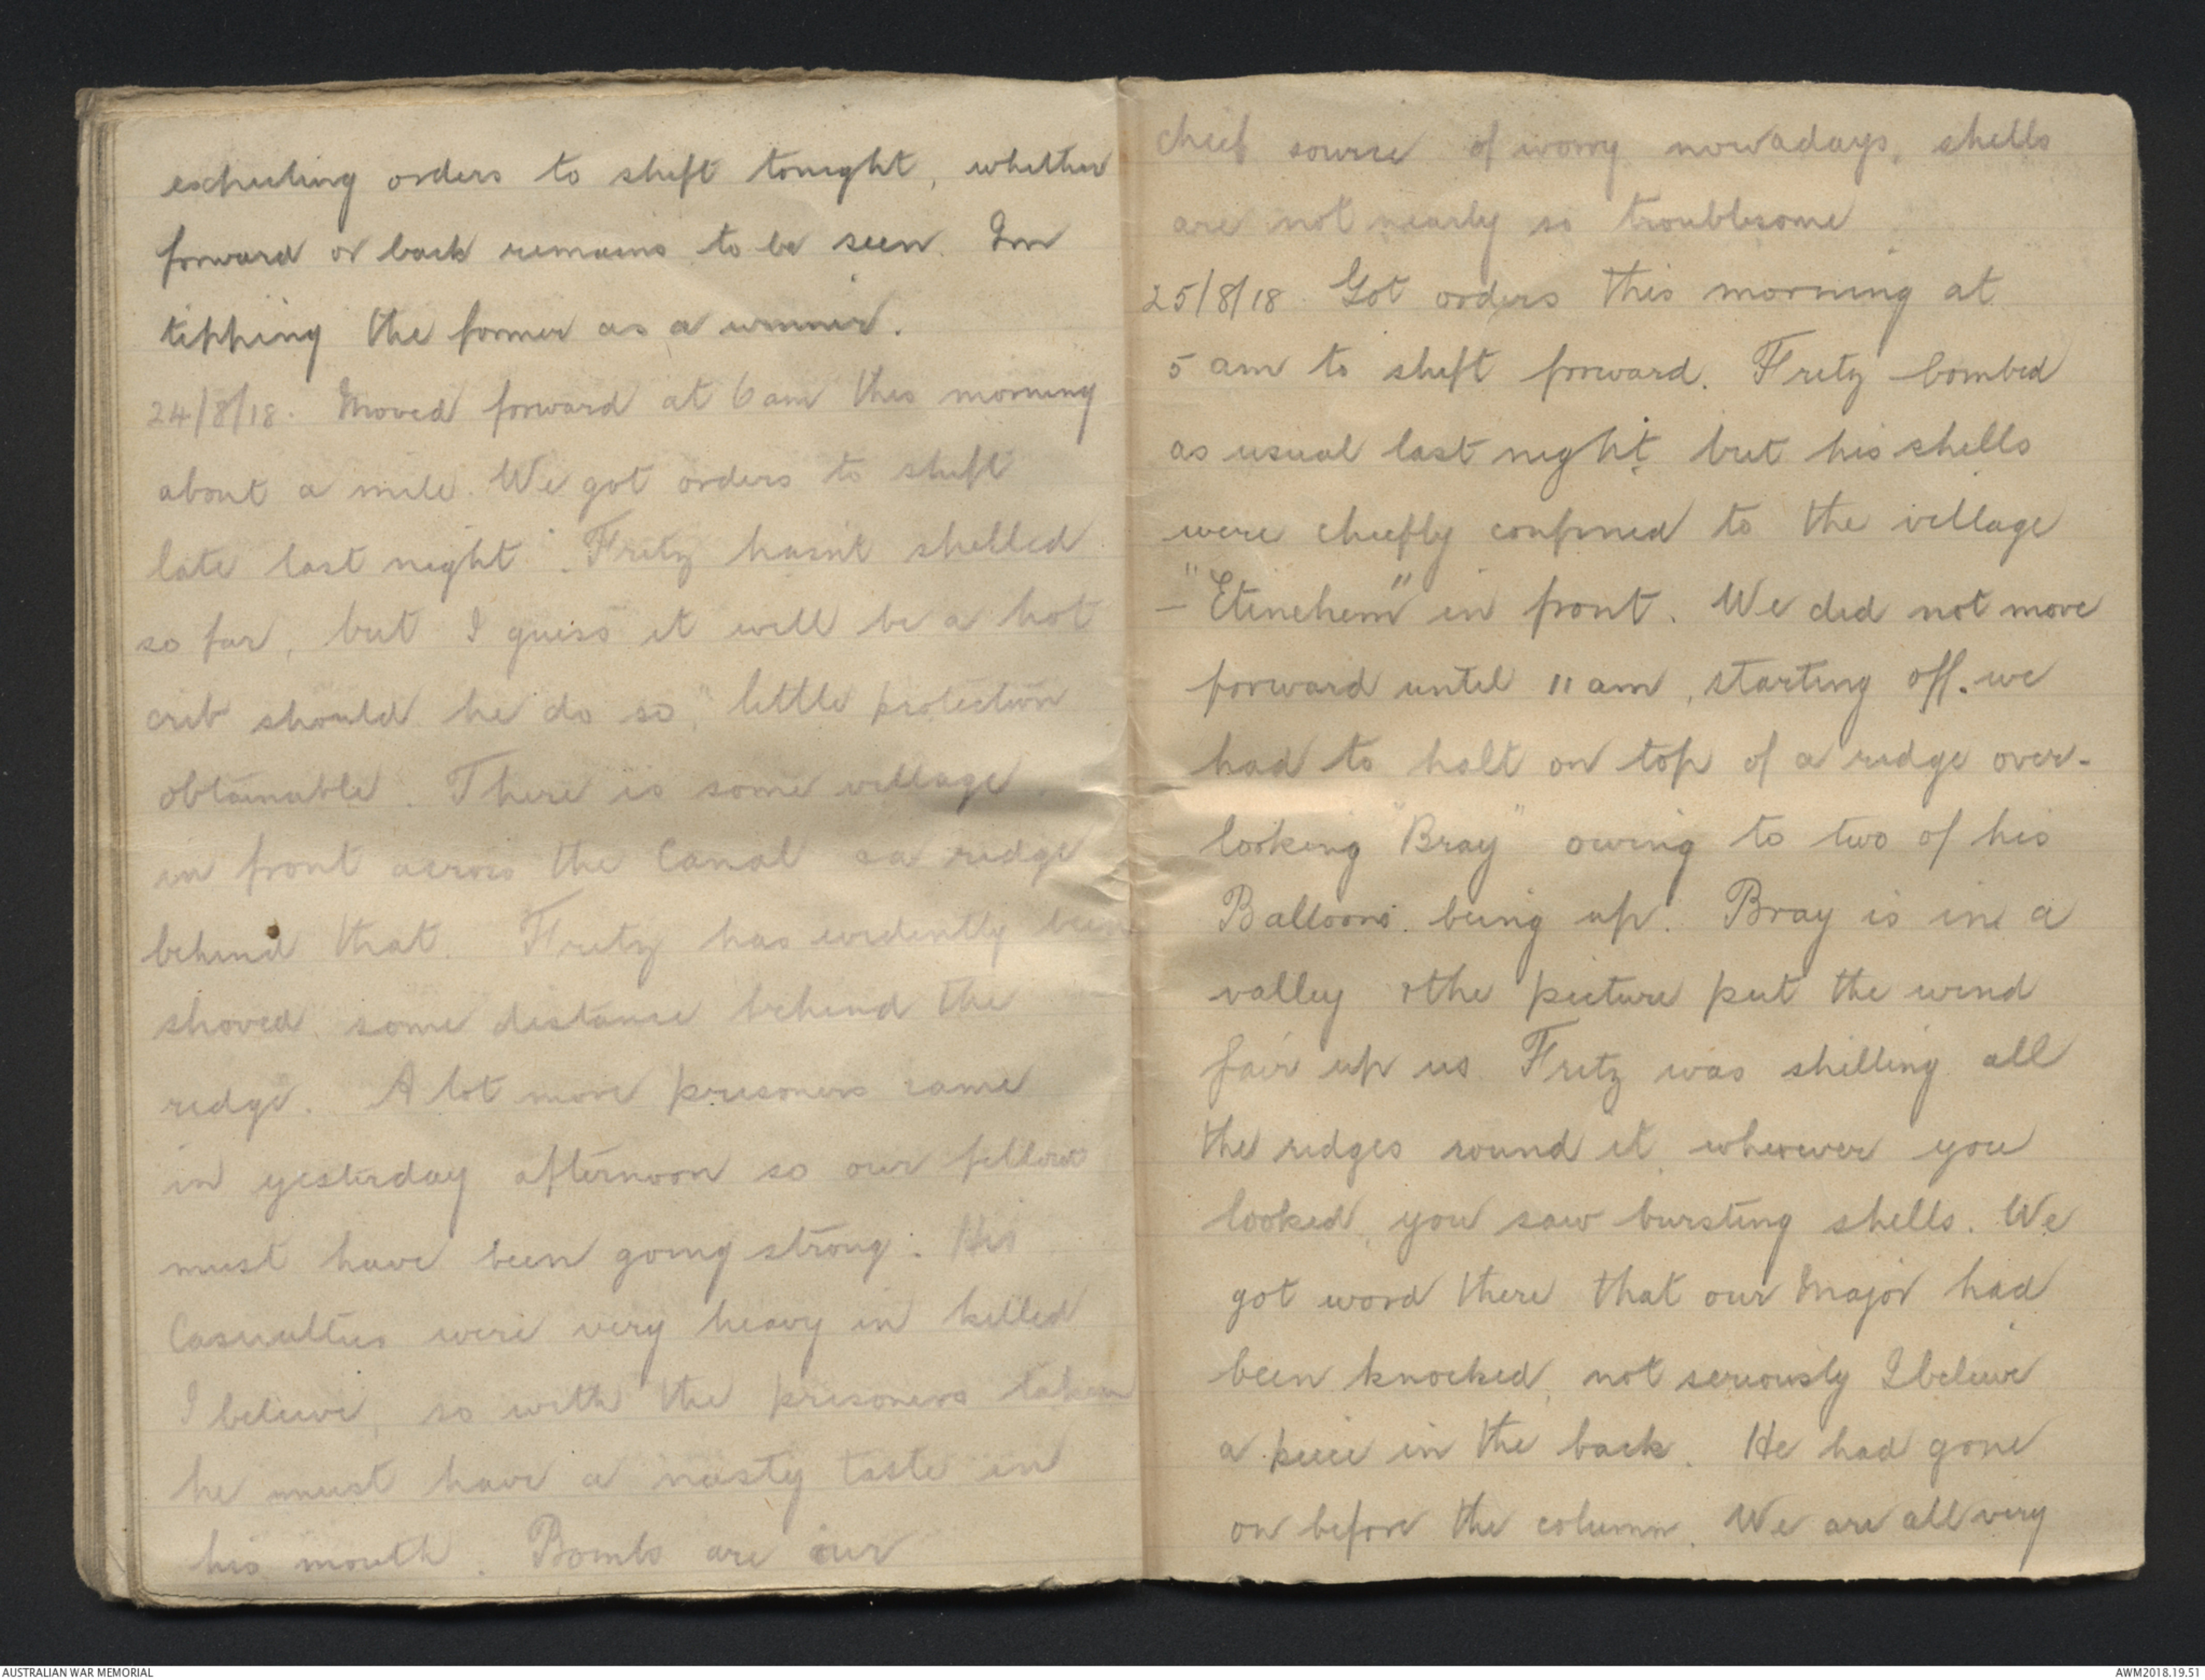 expecting orders to shift tonight, whether
forward or back remains to be seen. Im
tipping the former as a winner.
24/8/18. Moved forward at 6 am this morning
about a mile. We got orders to shift
late last night. Fritz hasnt shelled
so far, but I guess it will be a hot
crib should he do so, little protection
obtainable. There is some village
in front across the Canal & a ridge
behind that. Fritz has evidently been
shoved some distance behind the
ridge. A lot more prisoners came
in yesterday afternoon so our fellows
must have been going strong. His
Casualties were very heavy in killed
I believe, so with the prisoners taken
he must have a nasty taste in
his mouth. Bombs are our
chief source of worry nowadays, shells
are not nearly so troublesome
25/8/18. Got orders this morning at
5 am to shift forward. Fritz bombed
as usual last night but his shells
were chiefly confined to the village
- "Etinehem" in front. We did not move
forward until 11 am, starting off. we
had to halt on top of a ridge over-
looking "Bray" owing to two of his
Balloons being up. Bray is in a
valley & the picture put the wind
fair up us. Fritz was shelling all
the ridges round it, wherever you
looked, you saw bursting shells. We
got word there that our Major had
been knocked, not seriously I believe
a piece in the back. He had gone
on before the column. We are all very
AUSTRALIAN WAR MEMORIAL
AWM2018.19.51